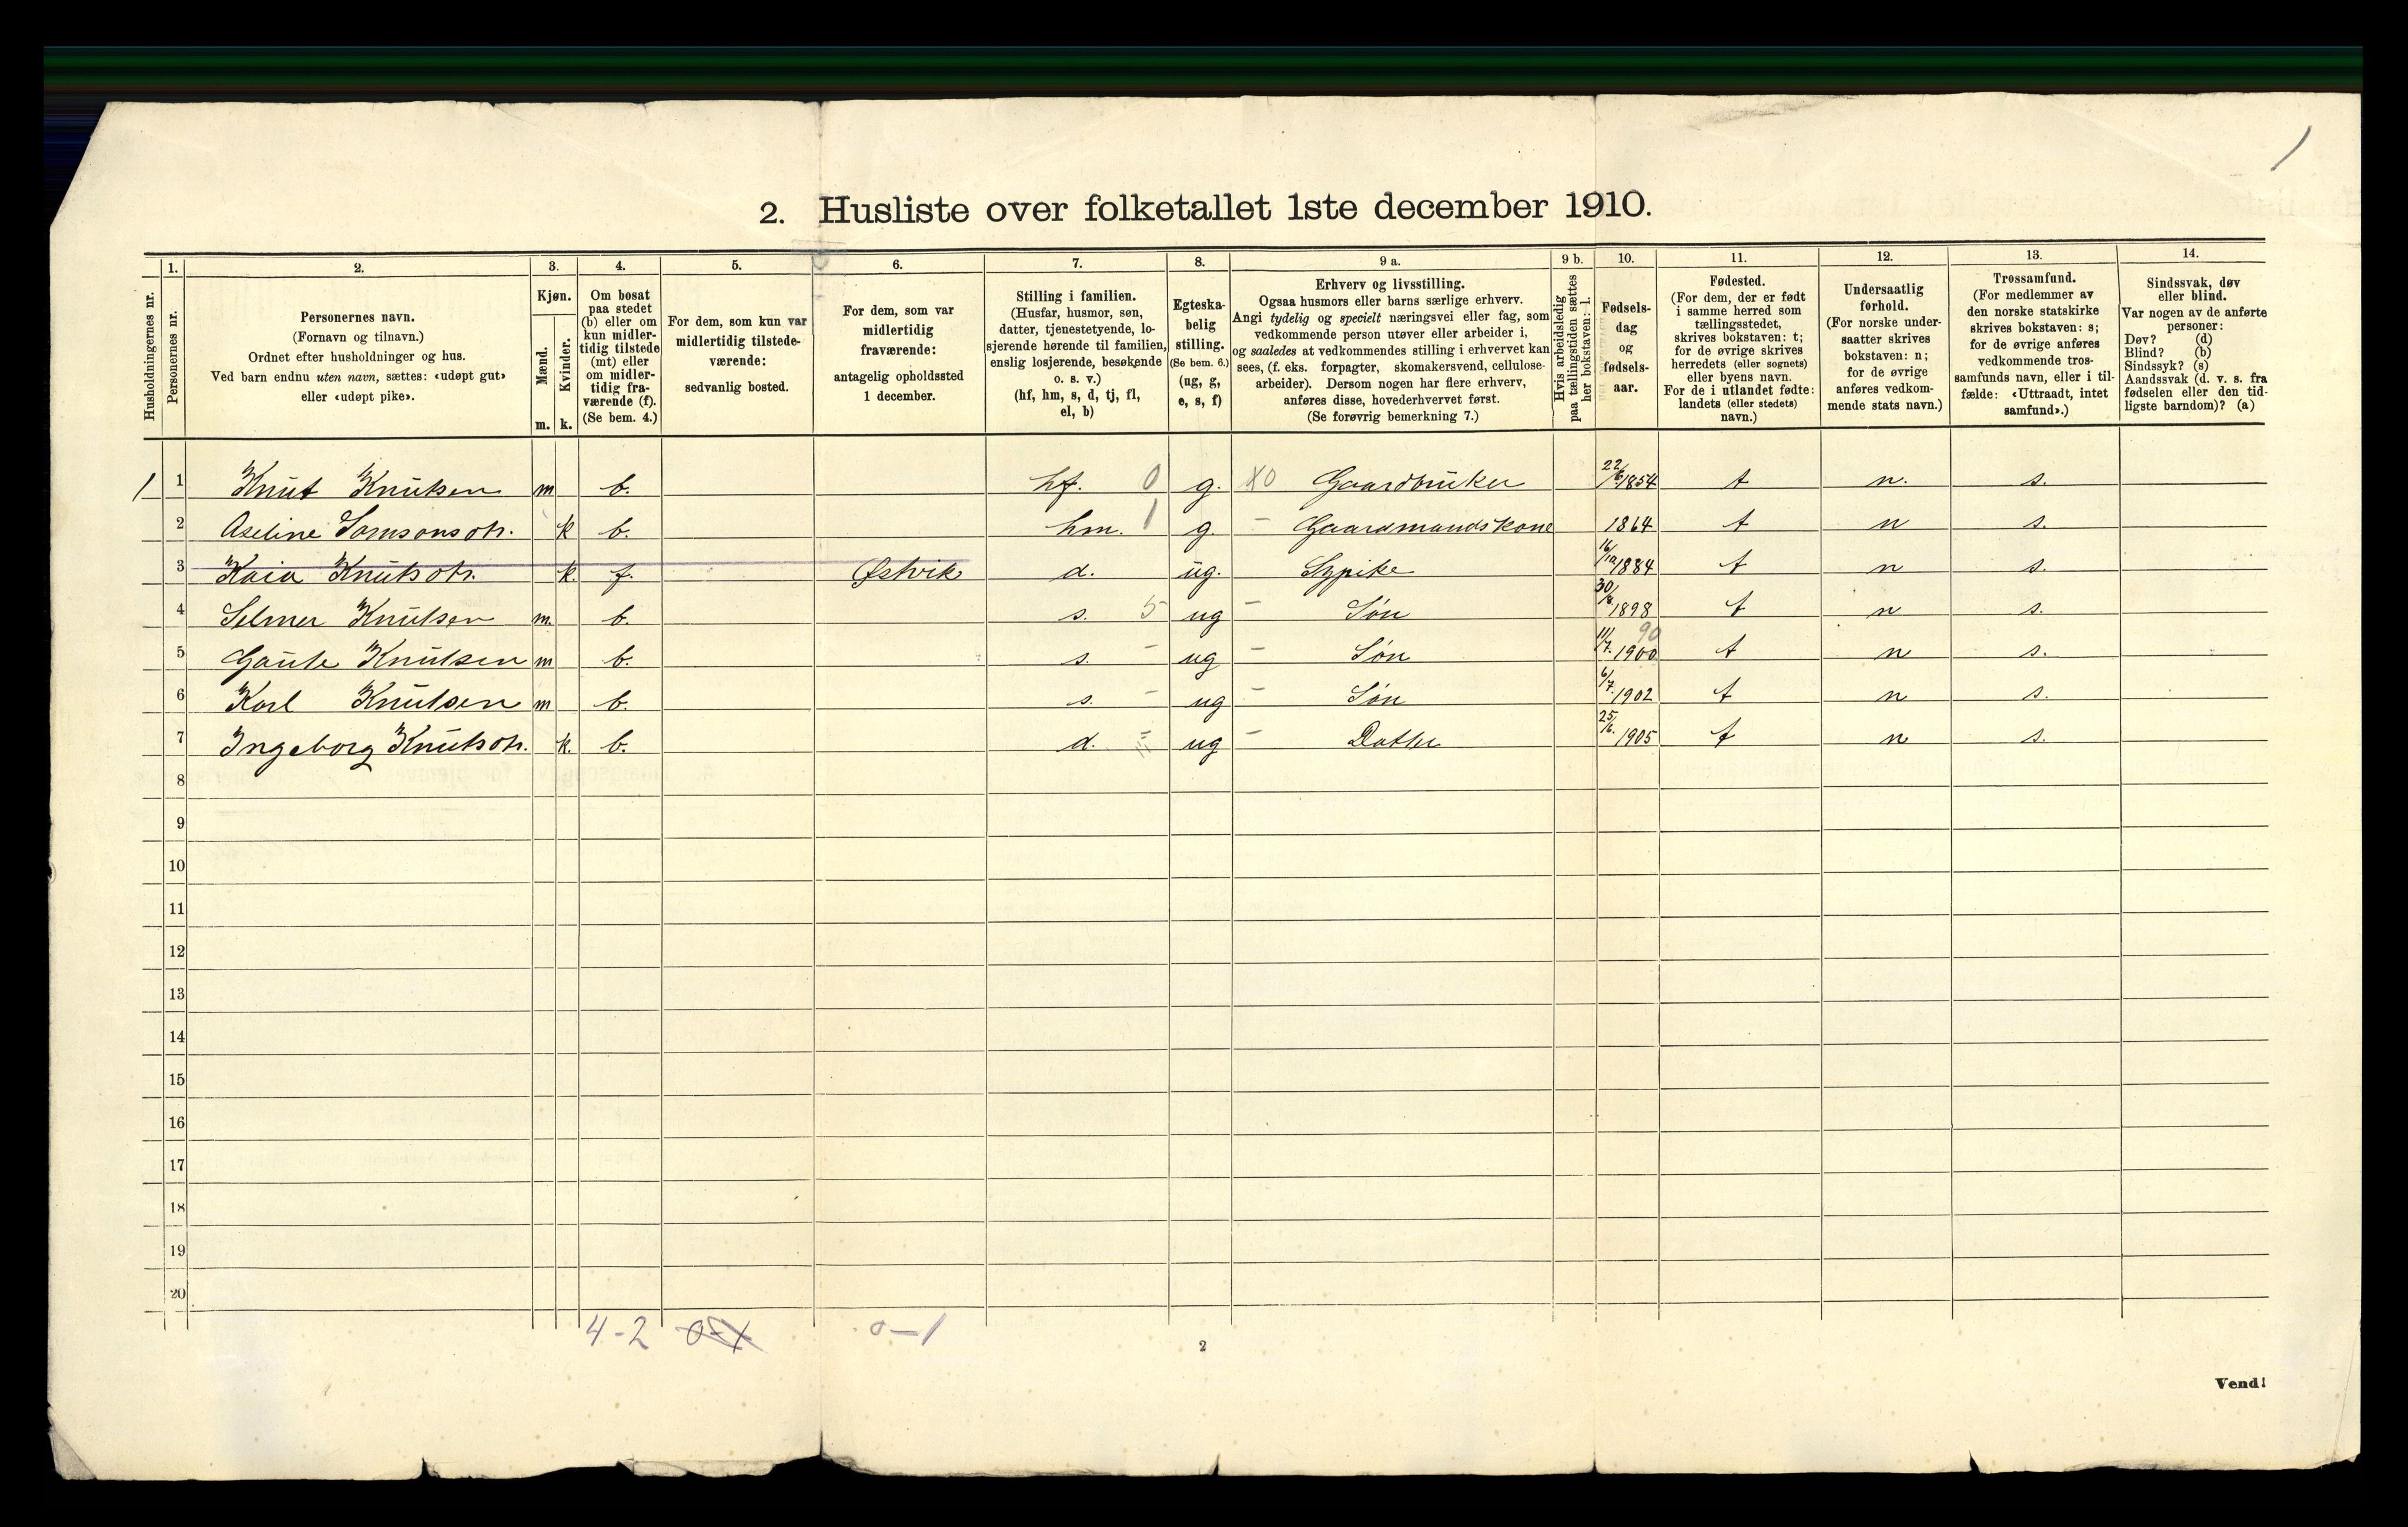 1
2. Husliste over folketallet 1ste december 1910.
Husholdningernes nr.
1. Personernes nr.
2. Personernes navn. (Fornavn og tilnavn.) Ordnet efter husholdninger og hus. Ved barn endnu uten navn, sættes: «udøpt gut» eller «udøpt pike».
3. Kjøn. Mænd. m. Kvinder. k.
4. Om bosat paa stedet (b) eller om kun midler-tidig tilstede (mt) eller om midler-tidig fra-værende (f). (Se bem. 4.)
5. For dem, som kun var midlertidig tilstede-værende: sedvanlig bosted.
6. For dem, som var midlertidig fraværende: antagelig opholdssted 1 december.
7. Stilling i familien. (Husfar, husmor, søn, datter, tjenestetyende, lo-sjerende hørende til familien, enslig losjerende, besøkende o. s. v.) (hf, hm, s, d, tj, fl, el, b)
8. Egteska-belig stilling. (Se bem. 6.) (ug, g, e, s, f)
9 a. Erhverv og livsstilling. Ogsaa husmors eller barns særlige erhverv. Angi tydelig og specielt næringsvei eller fag, som vedkommende person utøver eller arbeider i, og saaledes at vedkommendes stilling i erhvervet kan sees, (f. eks. forpagter, skomakersvend, cellulose-arbeider). Dersom nogen har flere erhverv, anføres disse, hovederhvervet først. (Se forøvrig bemerkning 7.)
9 b. Hvis arbeidsledig paa tællingstiden sættes her bokstaven: l.
10. Fødsels-dag og fødsels-aar.
11. Fødested. (For dem, der er født i samme herred som tællingsstedet, skrives bokstaven: t; for de øvrige skrives herredets (eller sognets) eller byens navn. For de i utlandet fødte: landets (eller stedets) navn.)
12. Undersaatlig forhold. (For norske under-saatter skrives bokstaven: n; for de øvrige anføres vedkom-mende stats navn.)
13. Trossamfund. (For medlemmer av den norske statskirke skrives bokstaven: s; for de øvrige anføres vedkommende tros-samfunds navn, eller i til-fælde: «Uttraadt, intet samfund».)
14. Sindssvak, døv eller blind. Var nogen av de anførte personer: Døv? (d) Blind? (b) Sindssyk? (s) Aandssvak (d. v. s. fra fødselen eller den tid-ligste barndom)? (a)
1 1 Knut Knutsen m b. hf. 0 g. X0 Gaardbruker 22/6 1854 t n. s.
2 Aseline Samsonsdtr. k b. hm. 1 g. – Gaardmandskone 1864 t n s.
3 Kaia Knutsdtr. k. f. Østvik d. ug. Sypike 16/12 1884 t n s.
4 Selmer Knutsen m. b. s. 5 ug – Søn 30/8 1898 t n s.
5 Gaute Knutsen m b. s. – ug – Søn 11/7. 1900 90 t n s.
6 Karl Knutsen m b. s. – ug – Søn 6/7. 1902 t n s.
7 Ingeborg Knutsdtr. k. b. d. ug – Datter 25/6. 1905 t n s.
8
9
10
11
12
13
14
15
16
17
18
19
20
4-2 0-1 0-1
2
Vend!